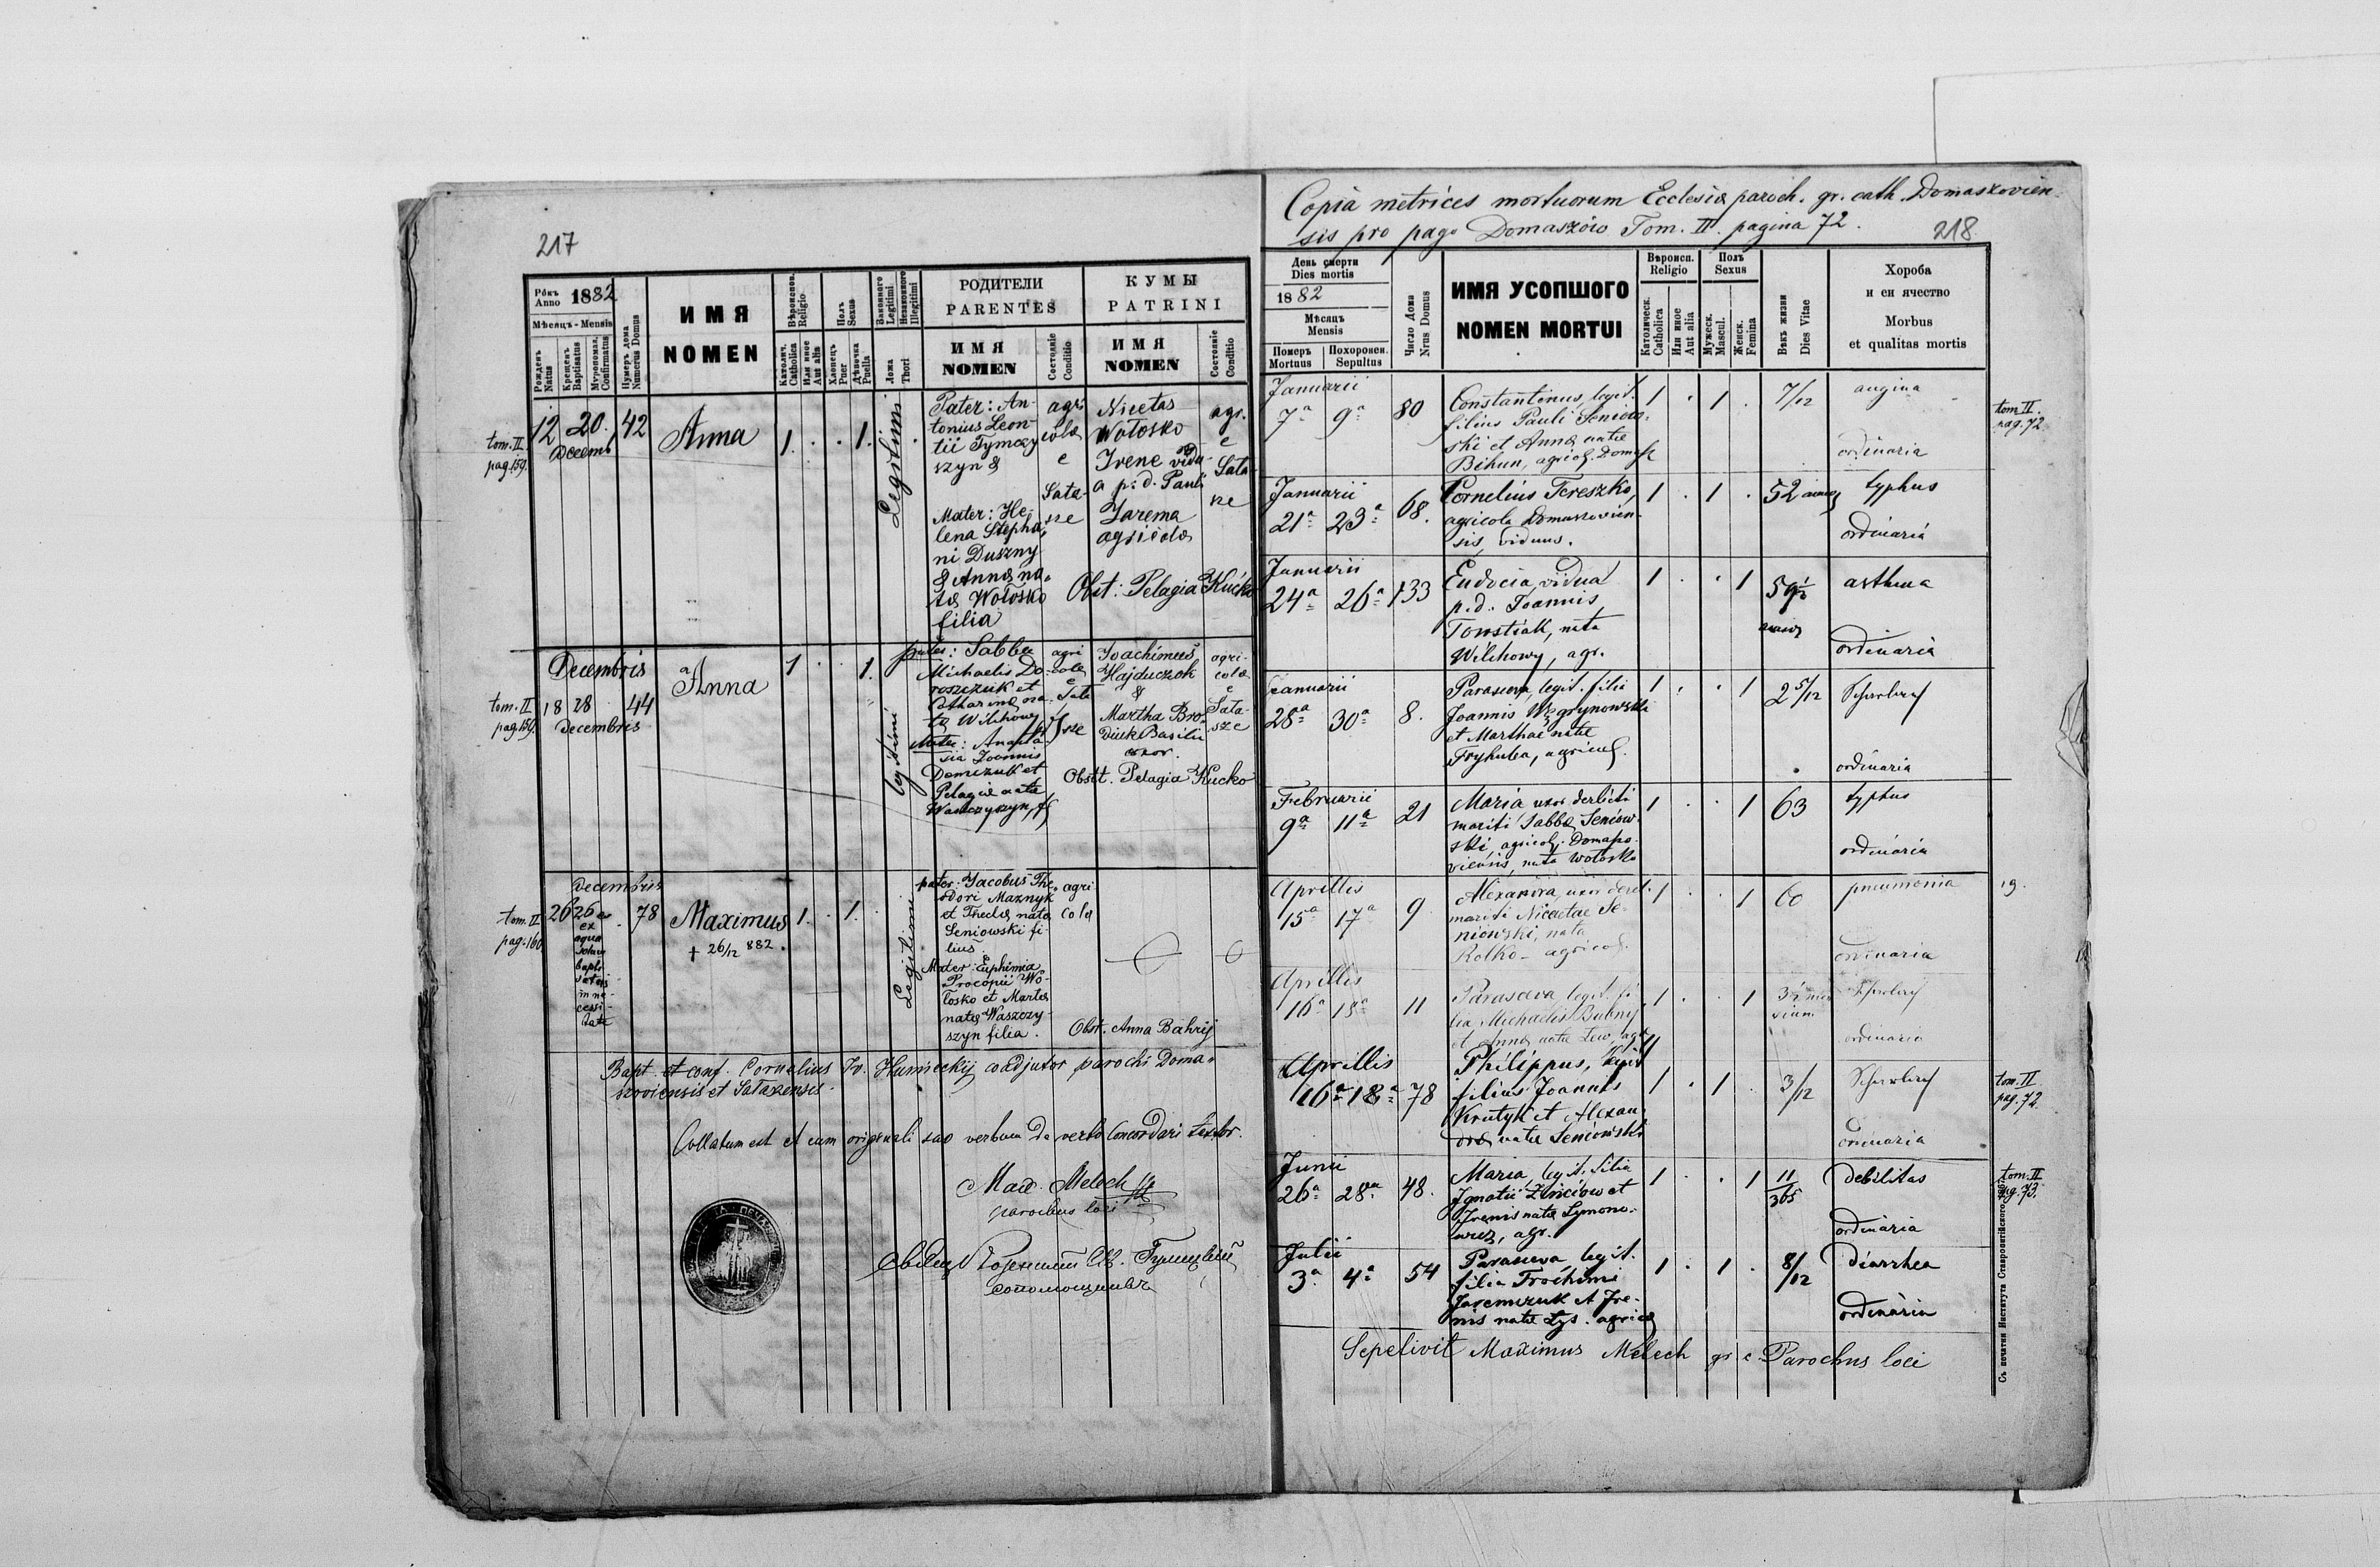 217
Рôкъ Anno 1882
Мѣсяцъ - Mensis
Рожденъ Natus
Крещенъ Baptisatus
Муропомаз. Confirmatus
Нумеръ дома Numerus Domus
ИМЯ
NOMEN
Вѣроиспов. Religio
Католич. Catholica
Или иное Aut alia
Полъ Sexus
Хлопецъ Puer
Дѣвочка Puella
Законного Legitimi
Незаконного Illegitimi
Ложа Thori
РОДИТЕЛИ
PARENTES
ИМЯ
NOMEN
Состояніе Conditio
КУМЫ
PATRINI
ИМЯ
NOMEN
Состояніе Conditio
tom. II
pag. 159.
12 20. 42
Decemb
Anna
1 . . 1.
Legitimi
Pater: An-
tonius Leon-
tii Tymczy
szyn &
Mater: He-
lena Stepha-
ni Duszny
& Annæ na-
tæ Wołosko
filia
agri
colæ
e
Sata-
sze
Nicetas
Wołosko
&
Irene vidu-
a p. d. Pauli
Jarema
agricolæ
agr.
e
Sata-
sze
Obst: Pelagia Kucko
tom. II
pag. 159.
Decembris
18 28 44
Decembris
Anna
1 . . 1.
legitimi
pater: Sabba
Michaelis Do-
roszczuk et
Catharinæ na-
tæ Wilchowy f
Mater: Anasta-
sia Joannis
Demczuk et
Pelagiæ natæ
Waszczyszyn, f
agri
colæ
e
Sata
sze
Joachimus
Hajduczok
&
Martha Bro-
diuk Basilii
uxor.
agri-
colæ
e
Sata-
sze
Obstt. Pelagia Kucko
tom. II
pag. 160
Decembris
26 26 78
ex
aqua
baptisatus
in ne-
cessi-
tate
Maximus
† 26/12 882.
1. . 1. .
Legitimi
pater: Jacobus The-
odori Maznyk
et Theclæ natæ
Seniowski fi-
lius.
Mater: Euphimia
Procopii Wo-
łosko et Martæ
natæ Waszczy-
szyn filia.
agri
colæ
Obst. Anna Bahrij
Bapt. et conf. Cornelius Humieckij coadjutor parochi Doma-
szoviensis et Sataszensis.
Collatum est et cum originali suo verbum de verbo concordari testor.
Max. Melech
parochus loci
Сопомощникъ
Copia metrices mortuorum Ecclesiæ paroch. gr. cath. Domaszovien-
sis pro pago Domaszów Tom. II. pagina 72.
218
День смерти
Dies mortis
1882
Мѣсяцъ
Mensis
Померъ Mortuus
Похоронен. Sepultus
Число Дома Nrus Domus
ИМЯ УСОПШОГО
NOMEN MORTUI
Вѣроисп. Religio
Католическ. Catholica
Или иное Aut alia
Полъ Sexus
Мужеск. Mascul.
Женск. Femina
Вѣкъ жизни Dies Vitae
Хороба
и еи ячество
Morbus
et qualitas mortis
Januarii
7ª 9ª 80
Constantinus, legit.
filius Pauli Seniow-
ski et Annæ natæ
Bihun, agricol. Domasz
1 . 1 . 7/12
angina
ordinaria
tom II.
pag. 72
Januarii
21ª 23ª 68.
Cornelius Tereszko,
agricola Domaszovien-
sis, viduus.
1 . 1 . 52 annor
typhus
ordinaria
Januarii
24ª 26ª 133
Eudocia, vidua
p. d. Joannis
Towstiak, nata
Wilchowy, agr.
1 . . 1 59½
annor
asthma
ordinaria
Januarii
28ª 30ª 8.
Parasceva, legit. filia
Joannis Węgrynowski
et Marthae natæ
Fryhuba, agricol.
1 . . 1 2 5/12
Scharlach
ordinaria
Februarii
9ª 11ª 21
Maria uxor derlicti
mariti Sabbæ Seniow-
ski, agricol. Domaszo-
viensis, nata Wołosko
1 . . 1 63
typhus
ordinaria
Aprillis
15ª 17ª 9
Alexandra, uxor derel.
mariti Nicetae Se-
niowski, nata
Kolko - agricol.
1 . . 1 60
pneumonia
ordinaria
19.
Aprillis
16ª 18ª 11
Parasceva, legit. fi-
lia Michaelis Bubnij
et Annæ natæ Lew, agr
1 . . 1
Scharlach
ordinaria
Aprillis
16ª 18ª 78
Philippus, legit
filius Joannis
Krutyk et Alexan-
dræ natæ Seniowski
1 . 1 . 3/12
Scharlach
ordinaria
tom. II
pag. 72.
Junii
26ª 28ª 48.
Maria, legit. filia
Ignatii Zinciów et
Irenis natæ Symono-
wicz, agr.
1 . . 1 11/365
Debilitas
ordinaria
tom. II
pag. 73.
Julii
3ª 4ª 54
Parasceva legit.
filia Trochimi
Jaremczuk et Ire-
nis natæ Lys. agricol
1 . 1 . 8/12
diarrhea
ordinaria
Sepelivit Maximus Melech gr. c. Parochus loci
Съ печатни Института Ставропигійского